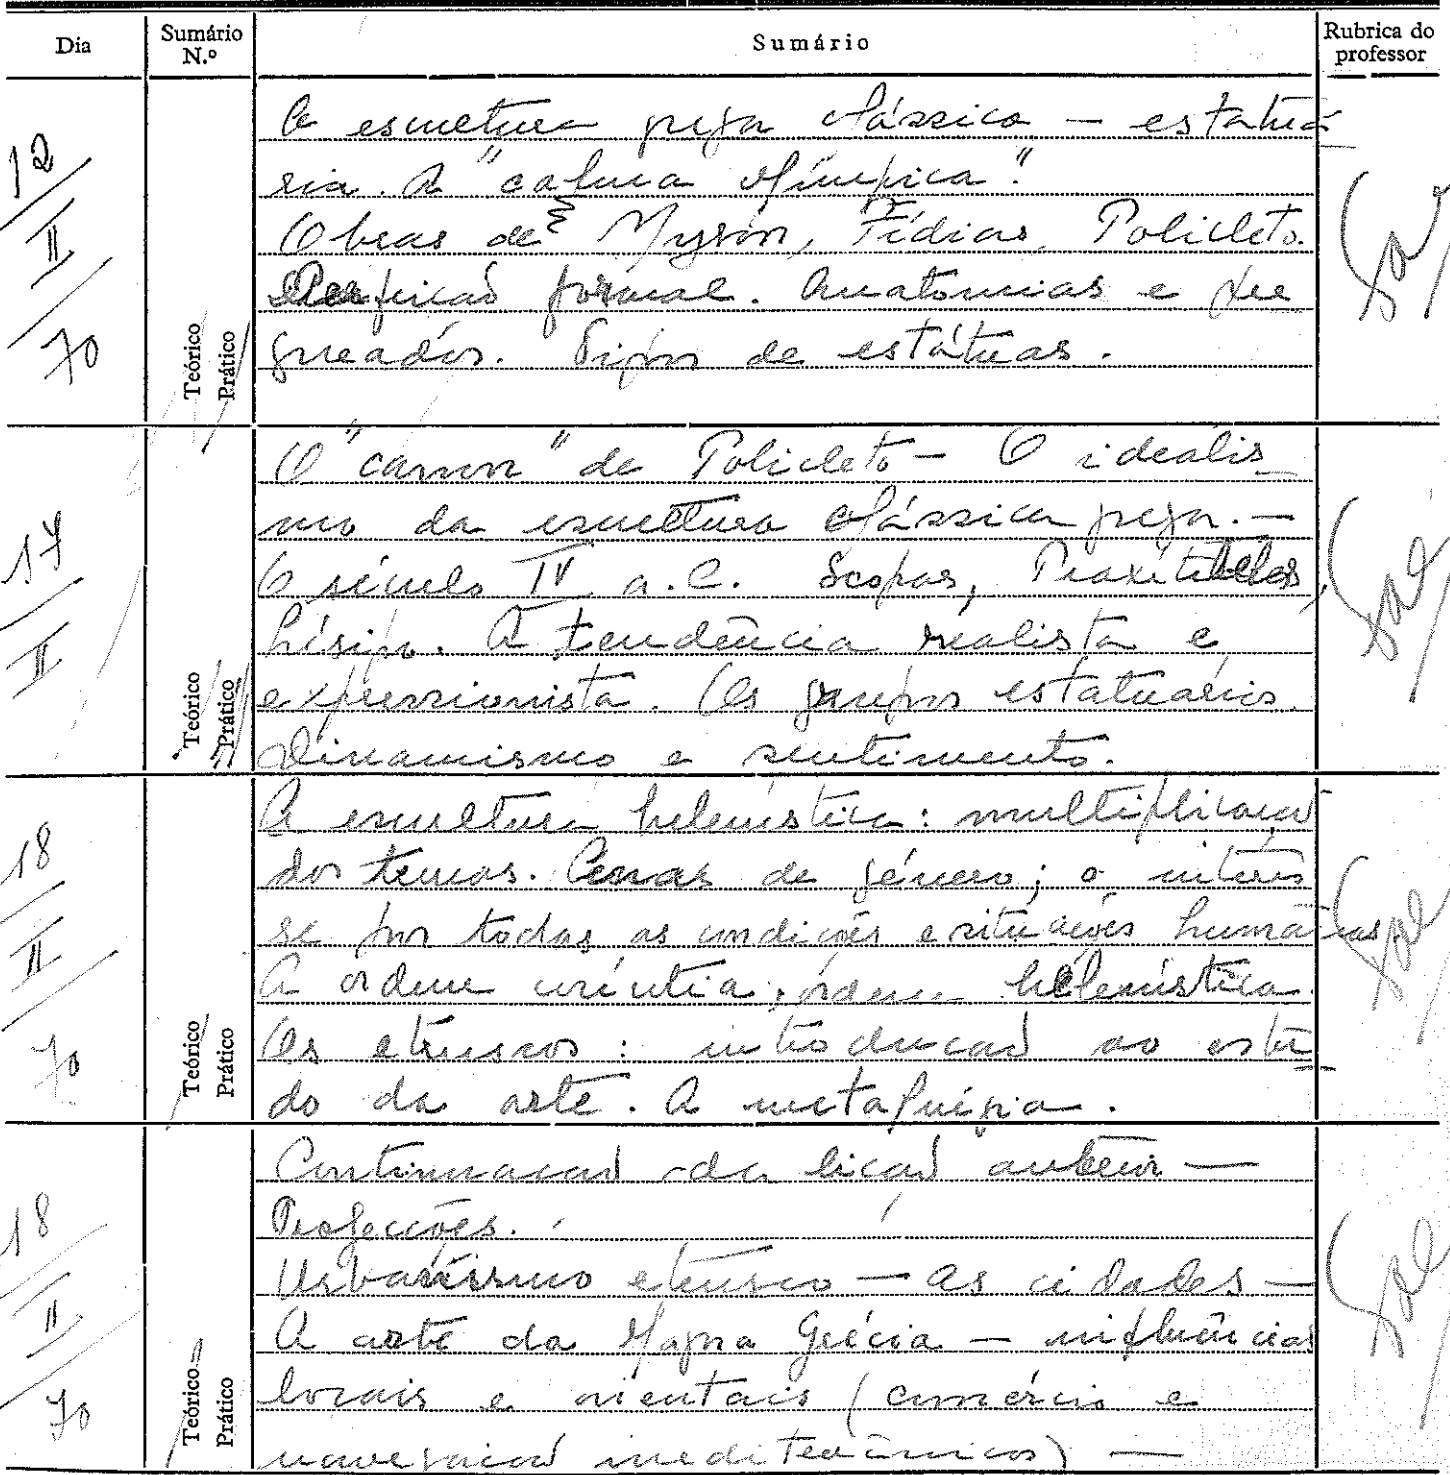 Dia
Sumário N.º
Sumário
Rubrica do professor
12
II
70
Teórico
Prático
A escultura grega clássica — estatuá
ria. A "calma olímpica".
Obras de Myron, Fídias, Policleto.
Perfeição formal. Anatomias e pre
gueados. Tipos de estátuas.
17
II
Teórico
Prático
O "canon" de Policleto — O idealis
mo da escultura clássica grega. —
O século IV a.C. Scopas, Praxíteles,
Lísipo. A tendência realista e
expressionista. Os grupos estatuários.
Dinamismo e sentimento.
18
II
70
Teórico
Prático
A escultura helenística: multiplicação
dos temas. Cenas de género; o interes
se por todas as condições e situações humanas.
A ordem coríntia, ordem helenística.
Os etruscos: introdução ao estu
do da arte. A metalurgia.
18
II
70
Teórico
Prático
Continuação da lição anterior —
Projecções.
Urbanissmo etrusco — as cidades —
A arte da Magna Grécia — influências
locais e orientais (comércio e
navegação mediterrânicos) —